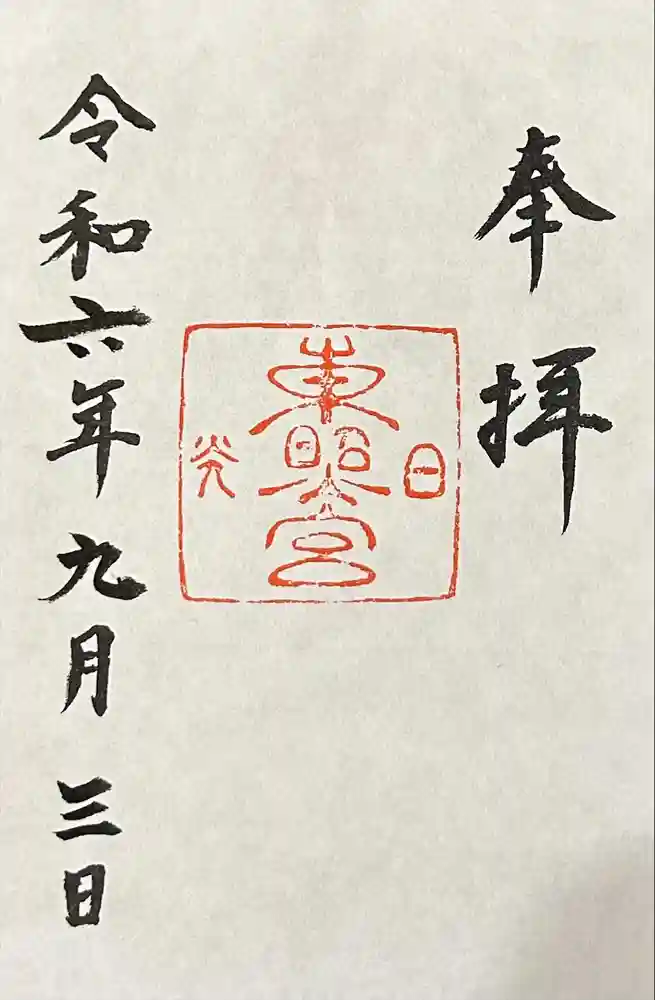 奉拝
日
東照宮
光
令和六年九月三日